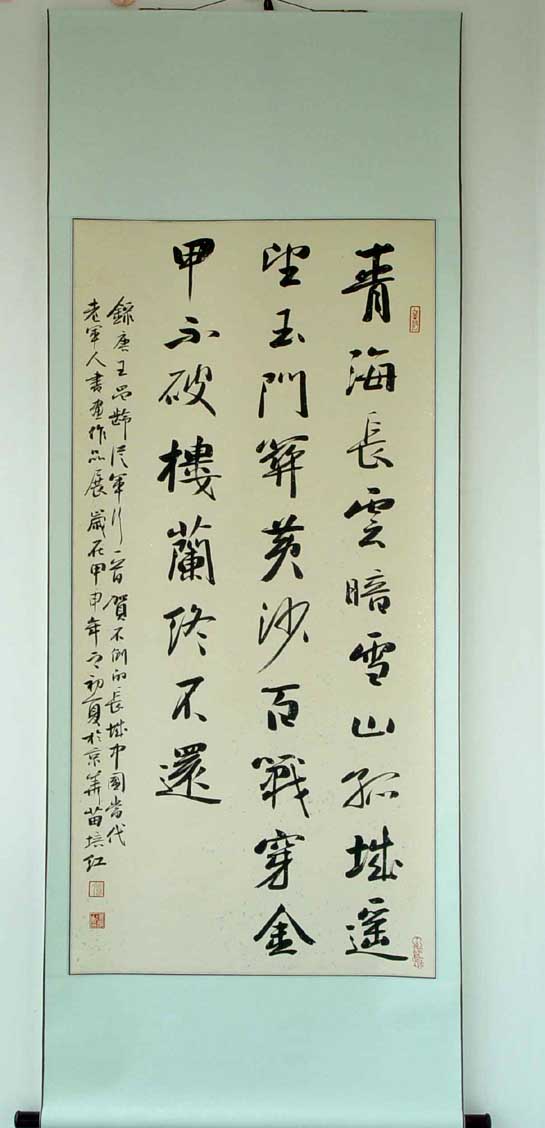 青海長雲暗雪山孤城遥
望玉門關黄沙百戰穿金
甲不破樓蘭終不還
録唐王昌齡從軍行一首賀不倒的長城中國當代
老軍人書畫作品展歲在甲申年之初夏於京華苗培红